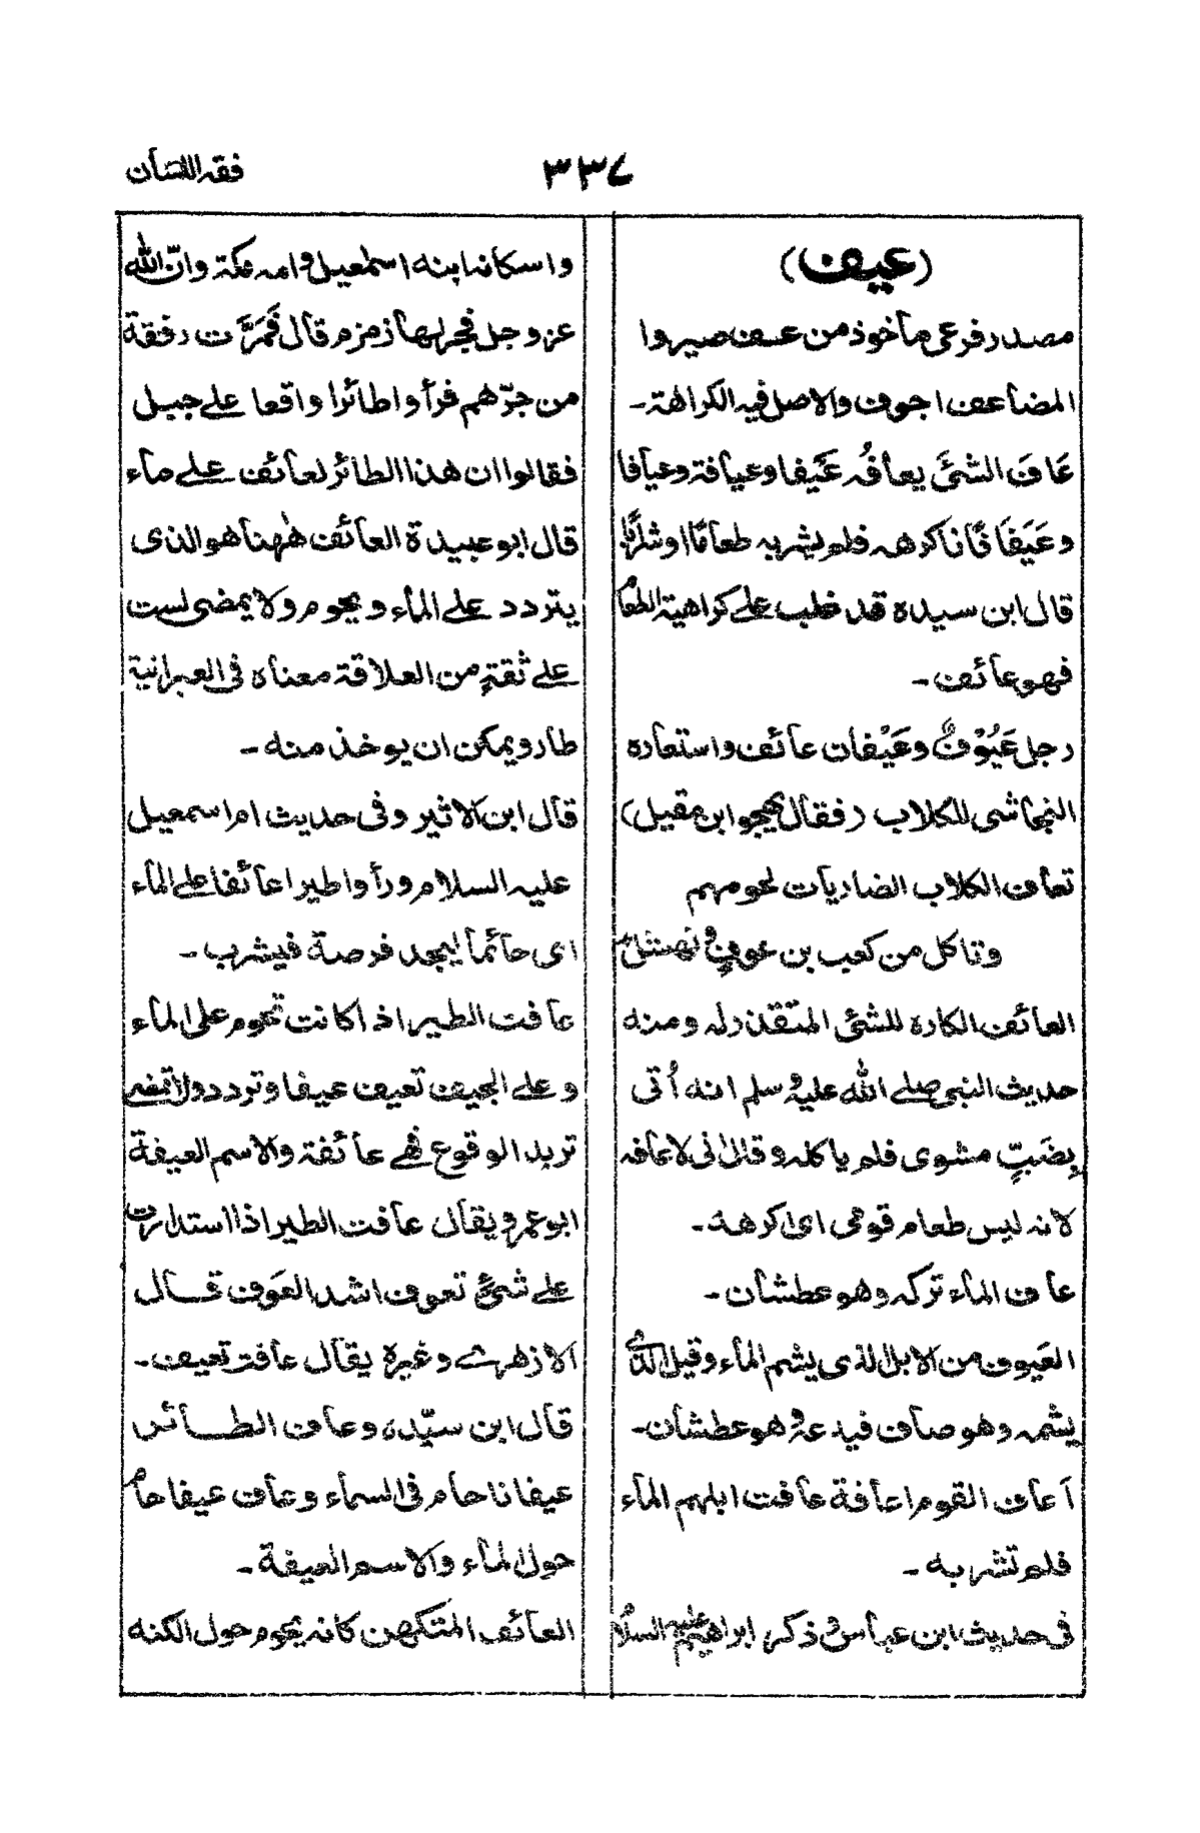 فقه اللسان
٣٣٧
(عيف)
مصدر فرعى مأخوذ من عف صيروا
المضاعف اجوف والاصل فيه الكراهة۔
عَافَ الشئَ يعافُه عَيفا وعيافة وعيافا
وعَيَفَانًا كرهه فلم يشربه طعامًا او شرابًا
قال ابن سيده قد غلب على كراهية الطعام
فهو عائف۔
رجل عَيُوْفٌ وعَيْفان عائف واستعاره
النجاشى للكلاب (فقال يهجو ابن مقيل)
تعاف الكلاب الضاريات لحومهم
وتاكل من كعب بن عوفٍ ونهشل
العائف الكاره للشئى المتقذر له ومنه
حديث النبى صلى الله عليه وسلم انه أُتى
بِضَبٍّ مشوى فلم ياكله وقال انى لاعافه
لانه ليس طعام قومى اى اكرهه۔
عاف الماء تركه وهو عطشان۔
العَيوف من الابل الذى يشم الماء وقيل الذى
يشمه وهو صاف فيدعه وهو عطشان۔
اَعاف القوم اعافة عافت ابلهم الماء
فلم تشربه۔
فى حديث ابن عباس وذكر ابراهيم عليه السلام
واسكانه ابنه اسمعيل وامه مكة وانّ الله
عز وجل فجر لها زمزم قال فَمَرَّت رفقة
من جرّهم فرأوا طائرا واقعا على جبل
فقالوا ان هذا الطائر لعائف على ماء
قال ابو عبيدة العائف هٰهنا هو الذى
يتردد على الماء ويحوم ولا يمضى لست
على ثقةٍ من العلاقة معناه فى العبرانية
طار ويمكن ان يوخذ منه۔
قال ابن الاثير وفى حديث ام اسمعيل
عليه السلام ورأوا طيرا عائفا على الماء
اى حائما ليجد فرصة فيشرب۔
عافت الطير اذا كانت تحوم على الماء
وعلى الجيف تعيف عيفا وتردد ولا تمضى
تريد الوقوع فهى عائفة والاسم العيفة
ابو عمرو يقال عافت الطير اذا استدارت
على شئى تعوف اشد العَوف قال
الازهرى وغيره يقال عافت تعيف۔
قال ابن سيّده وعاف الطائر
عيفانا حام فى السماء وعاف عيفا حام
حول الماء والاسم العيفة۔
العائف المتكهن كانه يحوم حول الكنه